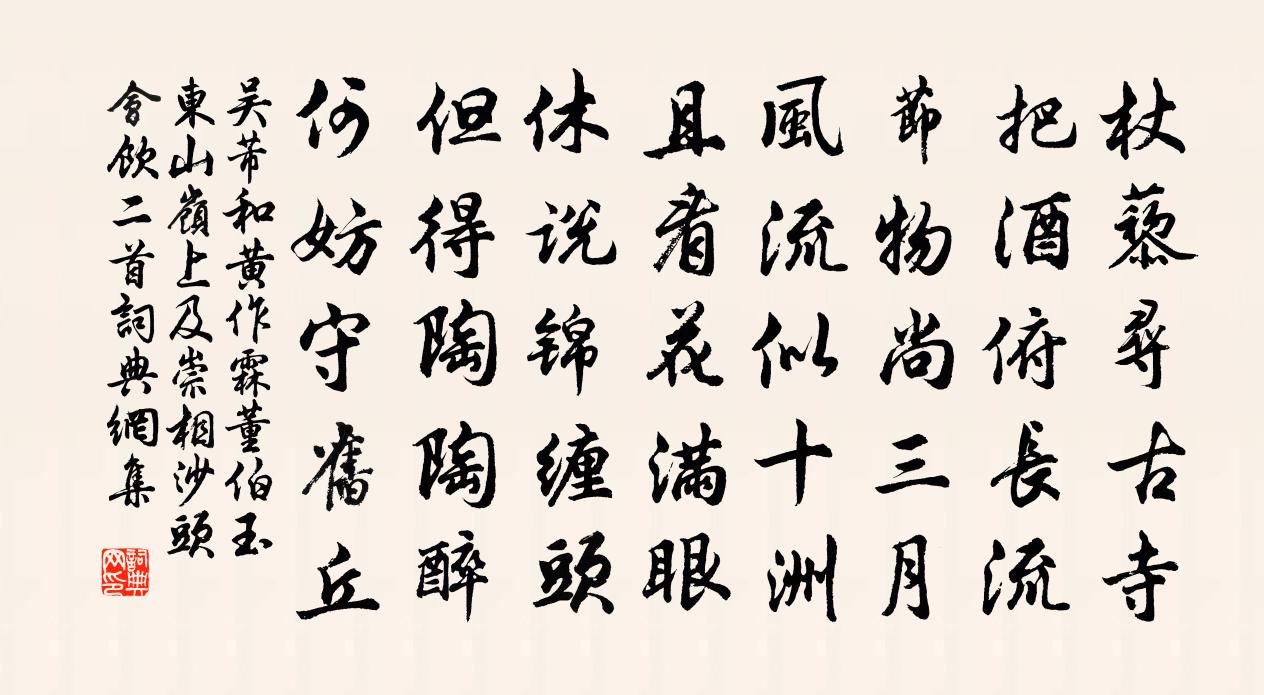 杖藜尋古寺
把酒俯長流
節物尚三月
風流似十洲
且看花滿眼
休说锦缠頭
但得陶陶醉
何妨守舊丘
吴芾和黄作霖董伯玉
東山嶺上及崇相沙頭
會飲二首詞典網集
詞典
网印